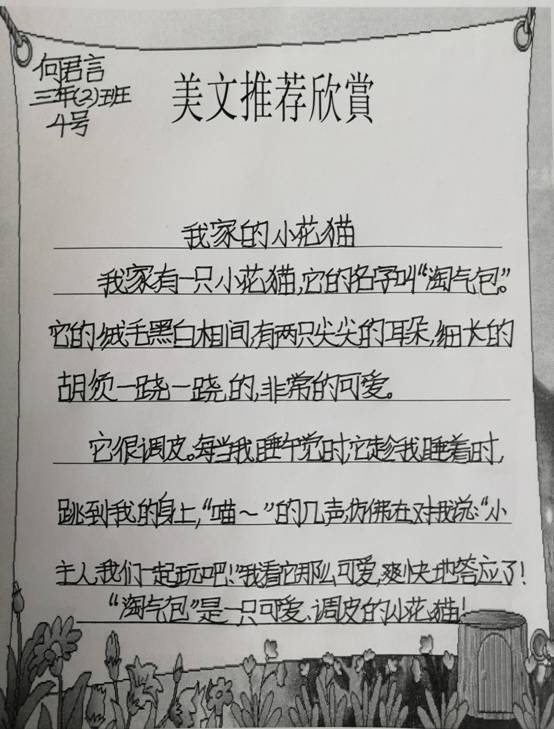 何君言
三年(2)班
4号
美文推荐欣赏
我家的小花猫
我家有一只小花猫,它的名字叫“淘气包”。
它的绒毛黑白相间,有两只尖尖的耳朵,细长的
胡须一跷一跷的,非常的可爱。
它很调皮。每当我睡午觉时,它趁我睡着时,
跳到我的身上,“喵～”的几声,仿佛在对我说:“小
主人,我们一起玩吧!”我看它那么可爱,爽快地答应了!
“淘气包”是一只可爱、调皮的小花猫!